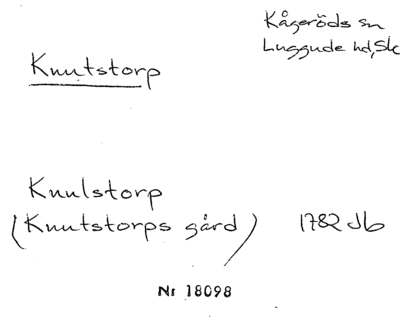 Kågeröds sn
Luggude hd, Sk
Knutstorp
Knulstorp
(Knutstorps gård) 1782 Jb
Nr 18098